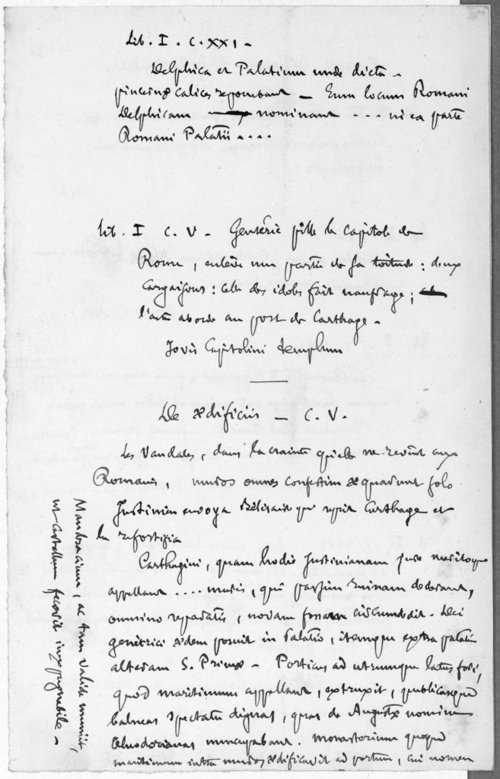 Lib. I. C. XXI -
Delphica et Palatium unde dicta -
pincernæ calices reponebant - Eum locum Romani
Delphicam nominant ... in ea parte
Romani Palatii ....
Lib. I C. V - Genséric pille le Capitole de
Rome, enlève une partie de sa toiture : deux
cargaisons : celle des idoles fait naufrage ;
l'autre aborde au port de Carthage -
Jovis Capitolini templum
De Ædificiis - C. V.
Les Vandales, dans la crainte qu'elle ne revînt aux
Romains, muros omnes confestim æquarunt solo
Justinien envoya Bélisaire qui reprit Carthage et
la refortifia
Carthagini, quam hodie Justinianam jure meritoque
appellant .... muris, qui passim ruinam dederant,
omnino reparatis, novam fossam circumdedit. Dei
genitrici ædem posuit in Palatio, itemque extra palatium
alteram S. Primæ - Porticus ad utrumque latus fori,
quod maritimum appellant, extruxit, publicasque
balneas spectatu dignas, quas de Augustæ nomine
Theodorianas nuncuparunt. Monasterium quoque
maritimum intra muros ædificavit ad portum, cui nomen
Mandracium, ac tam valide munivit
ut castellum fecerit inexpugnabile -